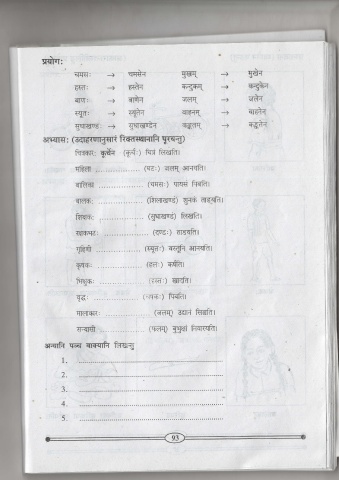 प्रयोगः
चमसः → चमसेन मुखम् → मुखेन
हस्तः → हस्तेन कन्दुकम् → कन्दुकेन
बाणः → बाणेन जलम् → जलेन
स्यूतः → स्यूतेन वाहनम् → वाहनेन
सुधाखण्डः → सुधाखण्डेन कङ्कतम् → कङ्कतेन
अभ्यासः (उदाहरणानुसारं रिक्तस्थानानि पूरयन्तु)
चित्रकारः कूर्चेन (कूर्चः) चित्रं लिखति।
महिला ............... (घटः) जलम् आनयति।
बालिका ............... (चमसः) पायसं पिबति।
बालकः ............... (शिलाखण्डः) शुनकं ताडयति।
शिक्षकः ............... (सुधाखण्डः) लिखति।
रक्षकभटः ............... (दण्डः) ताडयति।
गृहिणी ............... (स्यूतः) वस्तूनि आनयति।
कृषकः ............... (हलः) कर्षति।
भिक्षुकः ............... (हस्तः) खादति।
वृद्धः ............... (चषकः) पिबति।
मालाकारः ............... (जलम्) उद्यानं सिञ्चति।
सन्यासी ............... (फलम्) बुभुक्षां निवारयति।
अन्यानि पञ्च वाक्यानि लिखन्तु
1.
2.
3.
4.
5.
93